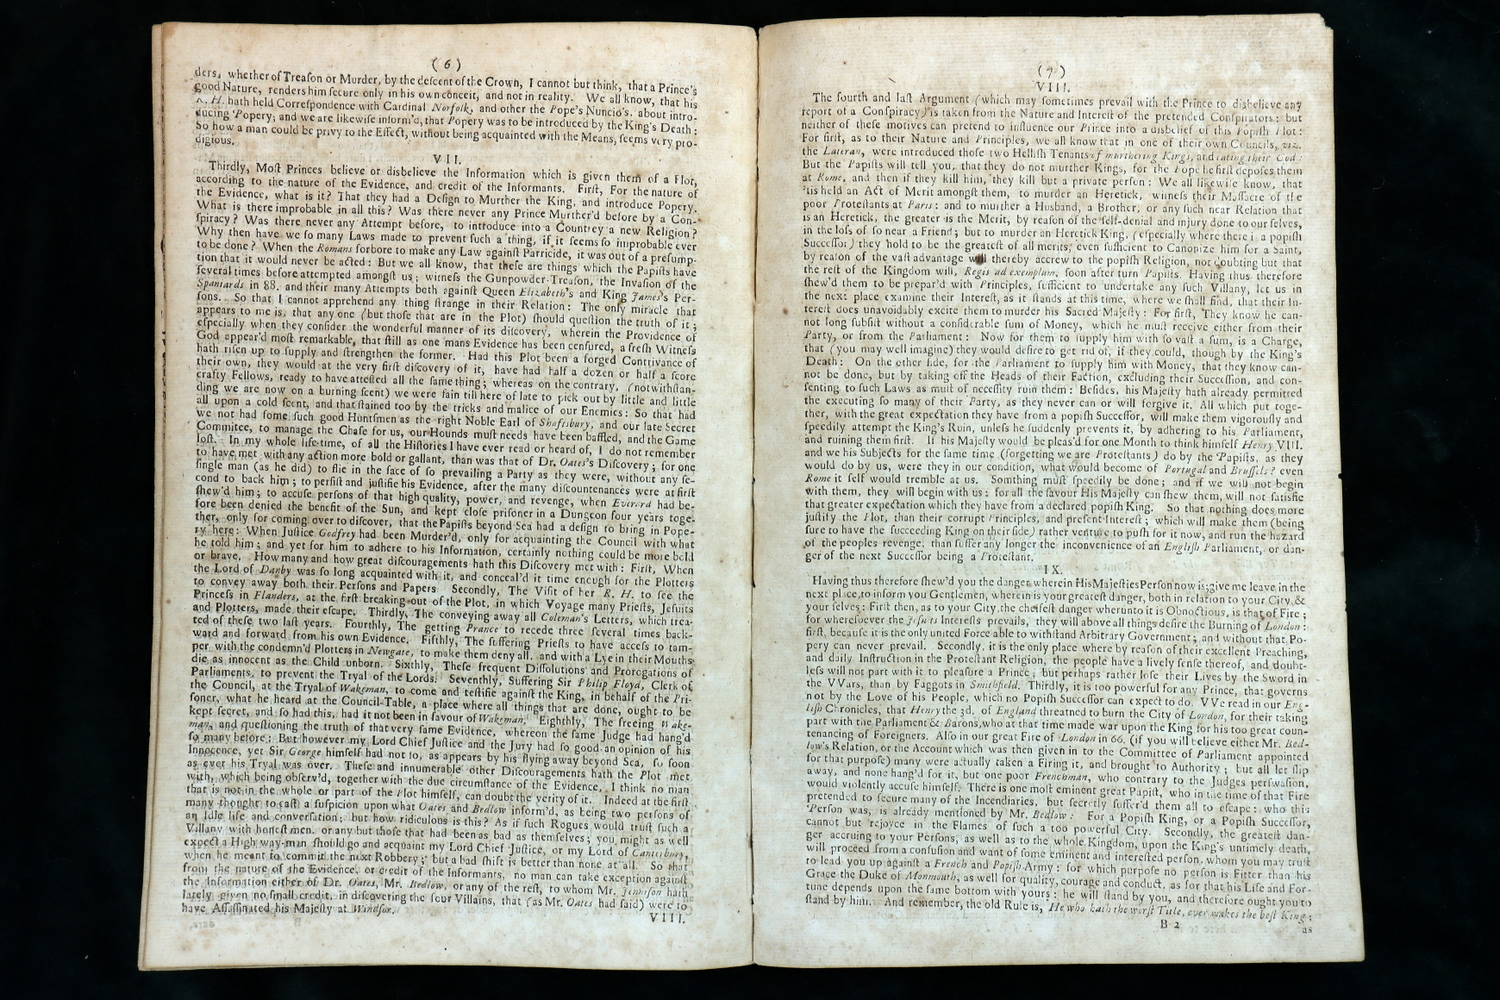 ( 6 )
ders, whether of Treaſon or Murder, by the deſcent of the Crown, I cannot but think, that a Prince's
good Nature, renders him ſecure only in his own conceit, and not in reality. We all know, that his
R. H. hath held Correſpondence with Cardinal Norfolk, and other the Pope's Nuncio's. about intro-
ducing Popery; and we are likewiſe inform'd, that Popery was to be introduced by the King's Death:
So how a man could be privy to the Effect, without being acquainted with the Means, ſeems very pro-
digious.
VII.
Thirdly, Moſt Princes believe or disbelieve the Information which is given them of a Plot,
according to the nature of the Evidence, and credit of the Informants. Firſt, For the nature of
the Evidence, what is it? That they had a Deſign to Murther the King, and introduce Popery.
What is there improbable in all this? Was there never any Prince Murther'd before by a Con-
ſpiracy? Was there never any Attempt before, to introduce into a Countrey a new Religion?
Why then have we ſo many Laws made to prevent ſuch a thing, if it ſeems ſo improbable ever
to be done? When the Romans forbore to make any Law againſt Parricide, it was out of a preſump-
tion that it would never be acted: But we all know, that theſe are things which the Papiſts have
ſeveral times before attempted amongſt us; witneſs the Gunpowder-Treaſon, the Invaſion of the
Spaniards in 88. and their many Attempts both againſt Queen Elizabeth's and King James's Per-
ſons. So that I cannot apprehend any thing ſtrange in their Relation: The only miracle that
appears to me is, that any one (but thoſe that are in the Plot) ſhould queſtion the truth of it;
eſpecially when they conſider the wonderful manner of its diſcovery, wherein the Providence of
God appear'd moſt remarkable, that ſtill as one mans Evidence has been cenſured, a freſh Witneſs
hath riſen up to ſupply and ſtrengthen the former. Had this Plot been a forged Contrivance of
their own, they would at the very firſt diſcovery of it, have had half a dozen or half a ſcore
crafty Fellows, ready to have atteſted all the ſame thing; whereas on the contrary, (notwithſtan-
ding we are now on a burning ſcent) we were fain till here of late to pick out by little and little
all upon a cold ſcent, and that ſtained too by the tricks and malice of our Enemies: So that had
we not had ſome ſuch good Huntſmen as the right Noble Earl of Shaftsbury, and our late Secret
Commitee, to manage the Chaſe for us, our Hounds muſt needs have been baffled, and the Game
loſt. In my whole life-time, of all the Hiſtories I have ever read or heard of, I do not remember
to have met with any action more bold or gallant, than was that of Dr. Oates's Diſcovery; for one
ſingle man (as he did) to flie in the face of ſo prevailing a Party as they were, without any ſe-
cond to back him; to perſiſt and juſtifie his Evidence, after the many diſcountenances were at firſt
ſhew'd him; to accuſe perſons of that high quality, power, and revenge, when Everard had be-
fore been denied the benefit of the Sun, and kept cloſe priſoner in a Dungeon four years toge-
ther, only for coming over to diſcover, that the Papiſts beyond Sea had a deſign to bring in Pope-
ry here: When Juſtice Godfrey had been Murder'd, only for acquainting the Council with what
he told him; and yet for him to adhere to his Information, certainly nothing could be more bold
or brave. How many and how great diſcouragements hath this Diſcovery met with: Firſt, When
the Lord of Danby was ſo long acquainted with it, and conceal'd it time enough for the Plotters
to convey away both their Perſons and Papers Secondly, The Viſit of her R. H. to ſee the
Princeſs in Flanders, at the firſt breaking out of the Plot, in which Voyage many Prieſts, Jeſuits
and Plotters, made their eſcape. Thirdly, The conveying away all Coleman's Letters, which trea-
ted of theſe two laſt years. Fourthly, The getting Prance to recede three ſeveral times back-
ward and forward from his own Evidence. Fifthly, The ſuffering Prieſts to have acceſs to tam-
per with the condemn'd Plotters in Newgate, to make them deny all. and with a Lye in their Mouths
die as innocent as the Child unborn. Sixthly, Theſe frequent Diſſolutions and Prorogations of
Parliaments, to prevent the Tryal of the Lords. Seventhly, Suffering Sir Philip Floyd, Clerk of
the Council, at the Tryal of Wakeman, to come and teſtifie againſt the King, in behalf of the Pri-
ſoner, what he heard at the Council-Table, a place where all things that are done, ought to be
kept ſecret, and ſo had this, had it not been in favour of Wakeman. Eighthly, The freeing Wake-
man, and queſtioning the truth of that very ſame Evidence, whereon the ſame Judge had hang'd
ſo many before: But however my Lord Chief Juſtice and the Jury had ſo good an opinion of his
Innocence, yet Sir George himſelf had not ſo, as appears by his flying away beyond Sea, ſo ſoon
as ever his Tryal was over. Theſe and innumerable other Diſcouragements hath the Plot met
with, which being obſerv'd, together with the due circumſtance of the Evidence, I think no man
that is not in the whole or part of the Plot himſelf, can doubt the verity of it. Indeed at the firſt
many thought to caſt a ſuſpicion upon what Oates and Bedlow inform'd, as being two perſons of
an Idle life and converſation; but how ridiculous is this? As if ſuch Rogues would truſt ſuch a
Villany with honeſt men. or any but thoſe that had been as bad as themſelves; you might as well
expect a High way-man ſhould go and acquaint my Lord Chief Juſtice, or my Lord of Canterbury,
when he meant to commit the next Robbery; but a bad ſhift is better than none at all. So that
from the nature of the Evidence, or credit of the Informants, no man can take exception againſt
the Information either of Dr. Oates, Mr. Bedlow, or any of the reſt, to whom Mr. Jennſon hath
lately given no ſmall credit, in diſcovering the four Villains, that (as Mr. Oates had ſaid) were to
have Aſſaſſinated his Majeſty at Windſor.
VIII.
( 7 )
VIII.
The fourth and laſt Argument (which may ſometimes prevail with the Prince to disbelieve any
report of a Conſpiracy) is taken from the Nature and Intereſt of the pretended Conſpirators: but
neither of theſe motives can pretend to influence our Prince into a disbelief of this Popiſh Plot:
For firſt, as to their Nature and Principles, we all know that in one of their own Councils, viz.
the Lateran, were introduced thoſe two Helliſh Tenants of murthering Kings, and eating their God:
But the Papiſts will tell you, that they do not murther Kings, for the Pope he firſt depoſes them
at Rome, and then if they kill him, they kill but a private perſon: We all likewiſe know, that
'tis held an Act of Merit amongſt them, to murder an Heretick, witneſs their Maſſacre of the
poor Proteſtants at Paris: and to murder a Husband, a Brother, or any ſuch near Relation that
is an Heretick, the greater is the Merit, by reaſon of the ſelf-denial and injury done to our ſelves,
in the loſs of ſo near a Friend; but to murder an Heretick King, (eſpecially where there is a popiſh
Succeſſor) they hold to be the greateſt of all merits, even ſufficient to Canonize him for a Saint,
by reaſon of the vaſt advantage will thereby accrew to the popiſh Religion, not doubting but that
the reſt of the Kingdom will, Regis ad exemplum, ſoon after turn Papiſts. Having thus therefore
ſhew'd them to be prepar'd with Principles, ſufficient to undertake any ſuch Villany, let us in
the next place examine their Intereſt, as it ſtands at this time, where we ſhall find, that their In-
tereſt does unavoidably excite them to murder his Sacred Majeſty: For firſt, They know he can-
not long ſubſiſt without a conſiderable ſum of Money, which he muſt receive either from their
Party, or from the Parliament: Now for them to ſupply him with ſo vaſt a ſum, is a Charge,
that (you may well imagine) they would deſire to get rid of, if they could, though by the King's
Death: On the other ſide, for the Parliament to ſupply him with Money, that they know can-
not be done, but by taking off the Heads of their Faction, excluding their Succeſſion, and con-
ſenting to ſuch Laws as muſt of neceſſity ruin them: Beſides, his Majeſty hath already permitted
the executing ſo many of their Party, as they never can or will forgive it. All which put toge-
ther, with the great expectation they have from a popiſh Succeſſor, will make them vigorouſly and
ſpeedily attempt the King's Ruin, unleſs he ſuddenly prevents it, by adhering to his Parliament,
and ruining them firſt. If his Majeſty would be pleas'd for one Month to think himſelf Henry VIII.
and we his Subjects for the ſame time (forgetting we are Proteſtants) do by the Papiſts, as they
would do by us, were they in our condition, what would become of Portugal and Bruſſels? even
Rome it ſelf would tremble at us. Somthing muſt ſpeedily be done; and if we will not begin
with them, they will begin with us: for all the favour His Majeſty can ſhew them, will not ſatisfie
that greater expectation which they have from a declared popiſh King. So that nothing does more
juſtify the Plot, than their corrupt Principles, and preſent Intereſt; which will make them (being
ſure to have the ſucceeding King on their ſide) rather venture to puſh for it now, and run the hazard
of the peoples revenge, than ſuffer any longer the inconvenience of an Engliſh Parliament, or dan-
ger of the next Succeſſor being a Proteſtant.
IX.
Having thus therefore ſhew'd you the danger wherein His Majeſties Perſon now is; give me leave in the
next place, to inform you Gentlemen, wherein is your greateſt danger, both in relation to your City, &
your ſelves: Firſt then, as to your City, the cheifeſt danger wherunto it is Obnoctious, is that of Fire;
for whereſoever the Jeſuits Intereſts prevails, they will above all things deſire the Burning of London:
firſt, becauſe it is the only united Force able to withſtand Arbitrary Government; and without that Po-
pery can never prevail. Secondly, it is the only place where by reaſon of their excellent Preaching,
and daily Inſtruction in the Proteſtant Religion, the people have a lively ſenſe thereof, and doubt-
leſs will not part with it to pleaſure a Prince; but perhaps rather loſe their Lives by the Sword in
the VVars, than by Faggots in Smithfield. Thirdly, it is too powerful for any Prince, that governs
not by the Love of his People, which no Popiſh Succeſſor can expect to do. VVe read in our Eng-
liſh Chronicles, that Henry the 3d. of England threatned to burn the City of London, for their taking
part with the Parliament & Barons, who at that time made war upon the King for his too great coun-
tenancing of Foreigners. Alſo in our great Fire of London in 66. (if you will believe either Mr. Bed-
low's Relation, or the Account which was then given in to the Committee of Parliament appointed
for that purpoſe) many were actually taken a Firing it, and brought to Authority; but all let ſlip
away, and none hang'd for it, but one poor Frenchman, who contrary to the Judges perſwaſion,
would violently accuſe himſelf. There is one moſt eminent great Papiſt, who in the time of that Fire
pretended to ſecure many of the Incendiaries, but ſecretly ſuffer'd them all to eſcape: who this
Perſon was, is already mentioned by Mr. Bedlow: For a Popiſh King, or a Popiſh Succeſſor,
cannot but rejoyce in the Flames of ſuch a too powerful City. Secondly, the greateſt dan-
ger accruing to your Perſons, as well as to the whole Kingdom, upon the King's untimely death,
will proceed from a confuſion and want of ſome eminent and intereſted perſon, whom you may truſt
to lead you up againſt a French and Popiſh Army: for which purpoſe no perſon is Fitter than his
Grace the Duke of Monmouth, as well for quality, courage and conduct, as for that his Life and For-
tune depends upon the ſame bottom with yours: he will ſtand by you, and therefore ought you to
ſtand by him. And remember, the old Rule is, He who hath the worſt Title, ever makes the beſt King;
B 2
as